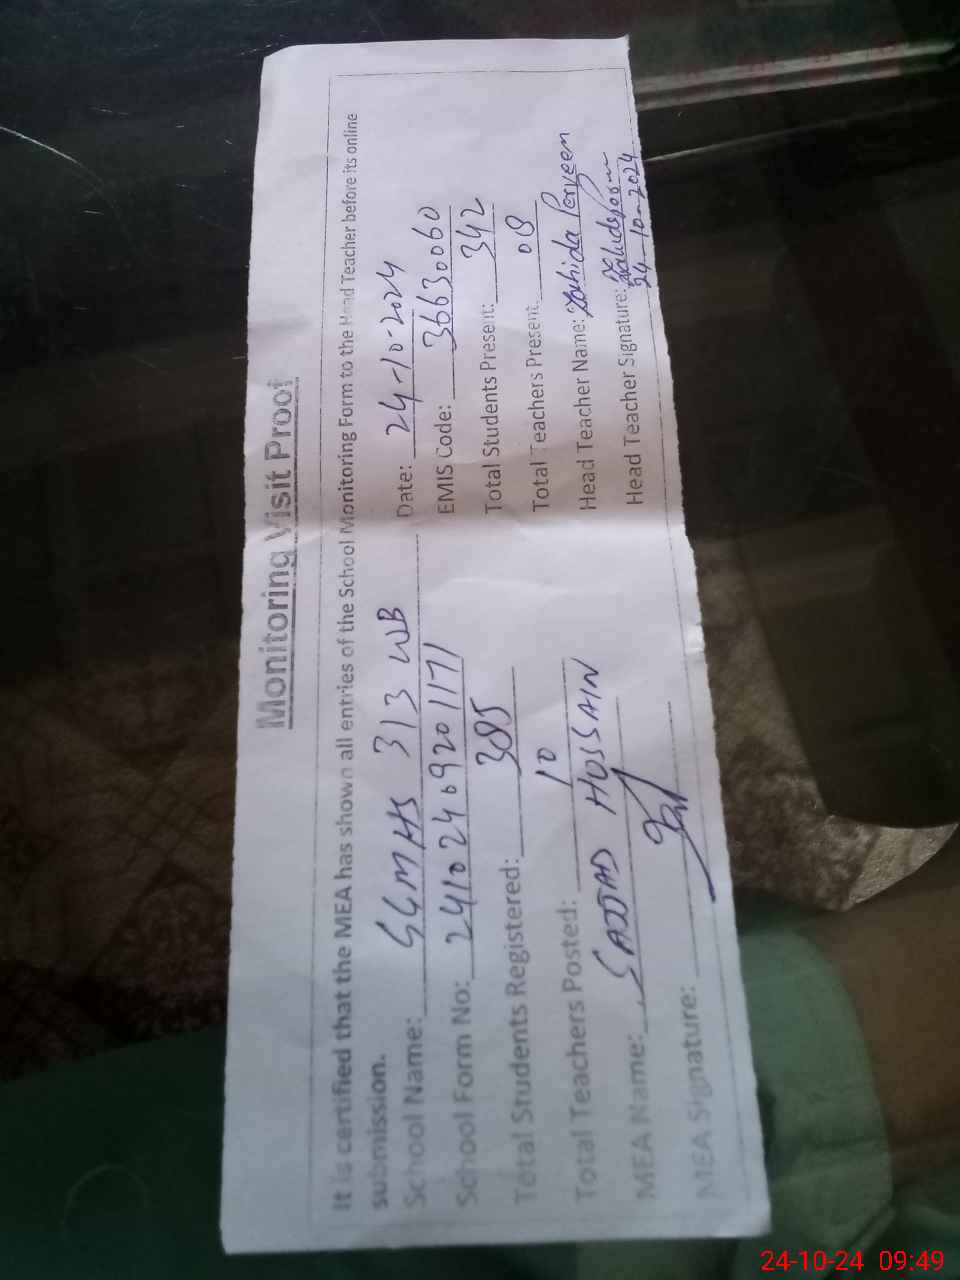 Monitoring Visit Proof
It is certified that the MEA has shown all entries of the School Monitoring Form to the Head Teacher before its online
submission.
School Name: GGMHS 313 WB Date: 24-10-2024
School Form No: 24102409201171 EMIS Code: 36630060
Total Students Registered: 385 Total Students Present: 342
Total Teachers Posted: 10 Total Teachers Present: 08
MEA Name: SAJJAD HUSSAIN Head Teacher Name: Zahida Perveen
MEA Signature: Head Teacher Signature:
24-10-2024
24-10-24 09:49